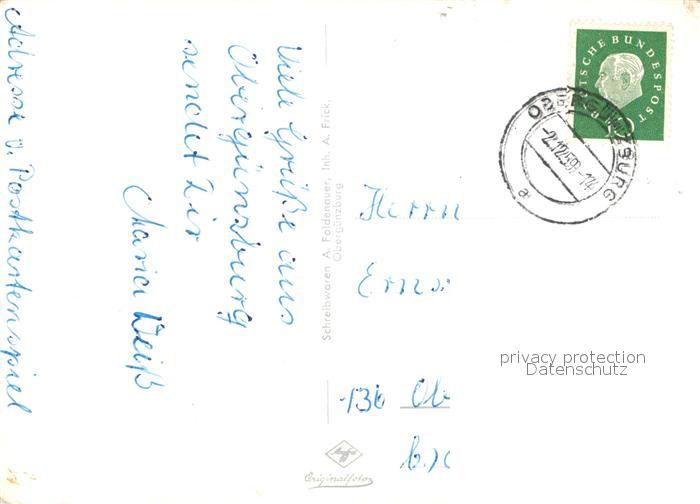 Viele Grüße aus
Obergünzburg
sendet Dir
Maria Weiß
Adresse v. Postkartenspiel
Schreibwaren A. Faldenauer, Inh. A. Frick,
Obergünzburg
DEUTSCHE BUNDESPOST
OBERGÜNZBURG
-2.12.59.-17
a
Herrn
Erns
Ob
privacy protection
Datenschutz
Agfa
Originalfoto